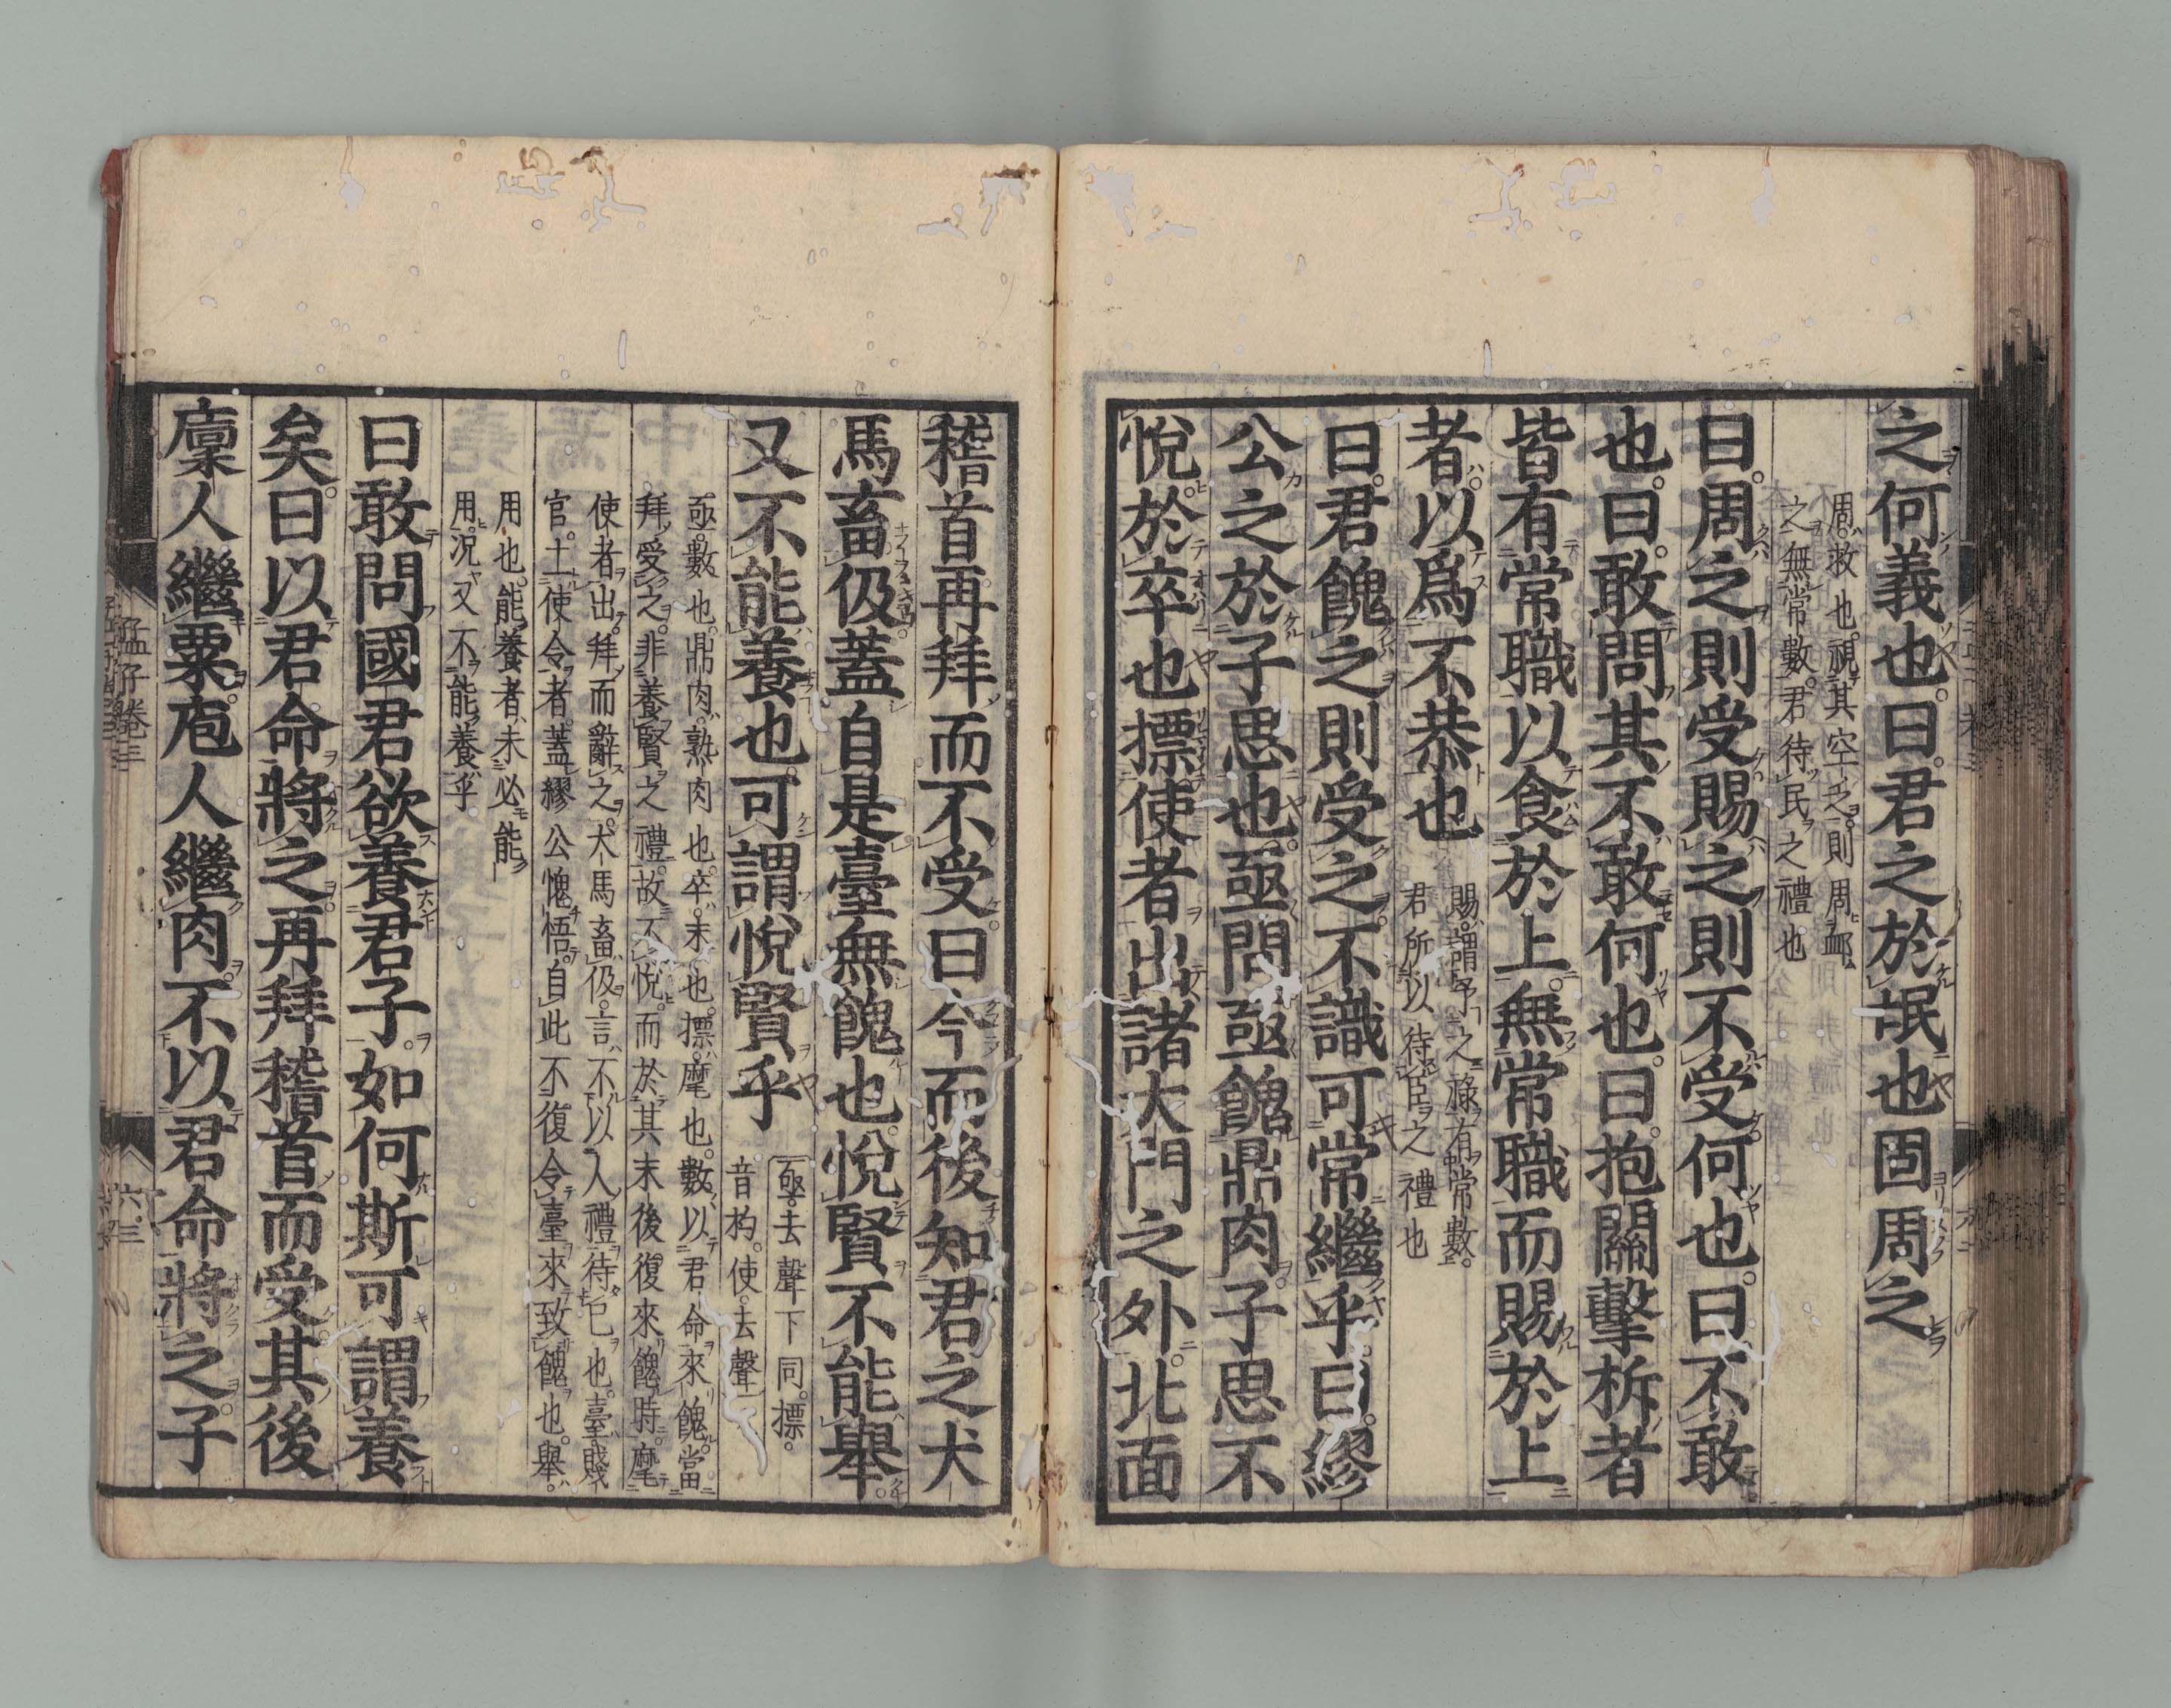 之何義也曰君之於氓也固周之
周救也視其空乏則周卹
之無常數君待民之禮也
曰周之則受賜之則不受何也曰不敢
也曰敢問其不敢何也曰抱關擊柝者
皆有常職以食於上無常職而賜於上
者以爲不恭也
賜謂予之祿有常數
君所以待臣之禮也
曰君餽之則受之不識可常繼乎曰繆
公之於子思也亟問亟餽鼎肉子思不
悅於卒也摽使者出諸大門之外北面
稽首再拜而不受曰今而後知君之犬
馬畜伋蓋自是臺無餽也悅賢不能舉
又不能養也可謂悅賢乎
亟去聲下同摽
音杓使去聲
亟數也鼎肉熟肉也卒末也摽麾也數以君命來餽當
拜受之非養賢之禮故不悅而於其末後復來餽時麾
使者出拜而辭之犬馬畜伋言不以人禮待己也臺賤
官主使令者蓋繆公愧悟自此不復令臺來致餽也舉
用也能養者未必能
用況又不能養乎
曰敢問國君欲養君子如何斯可謂養
矣曰以君命將之再拜稽首而受其後
廩人繼粟庖人繼肉不以君命將之子
孟子卷三